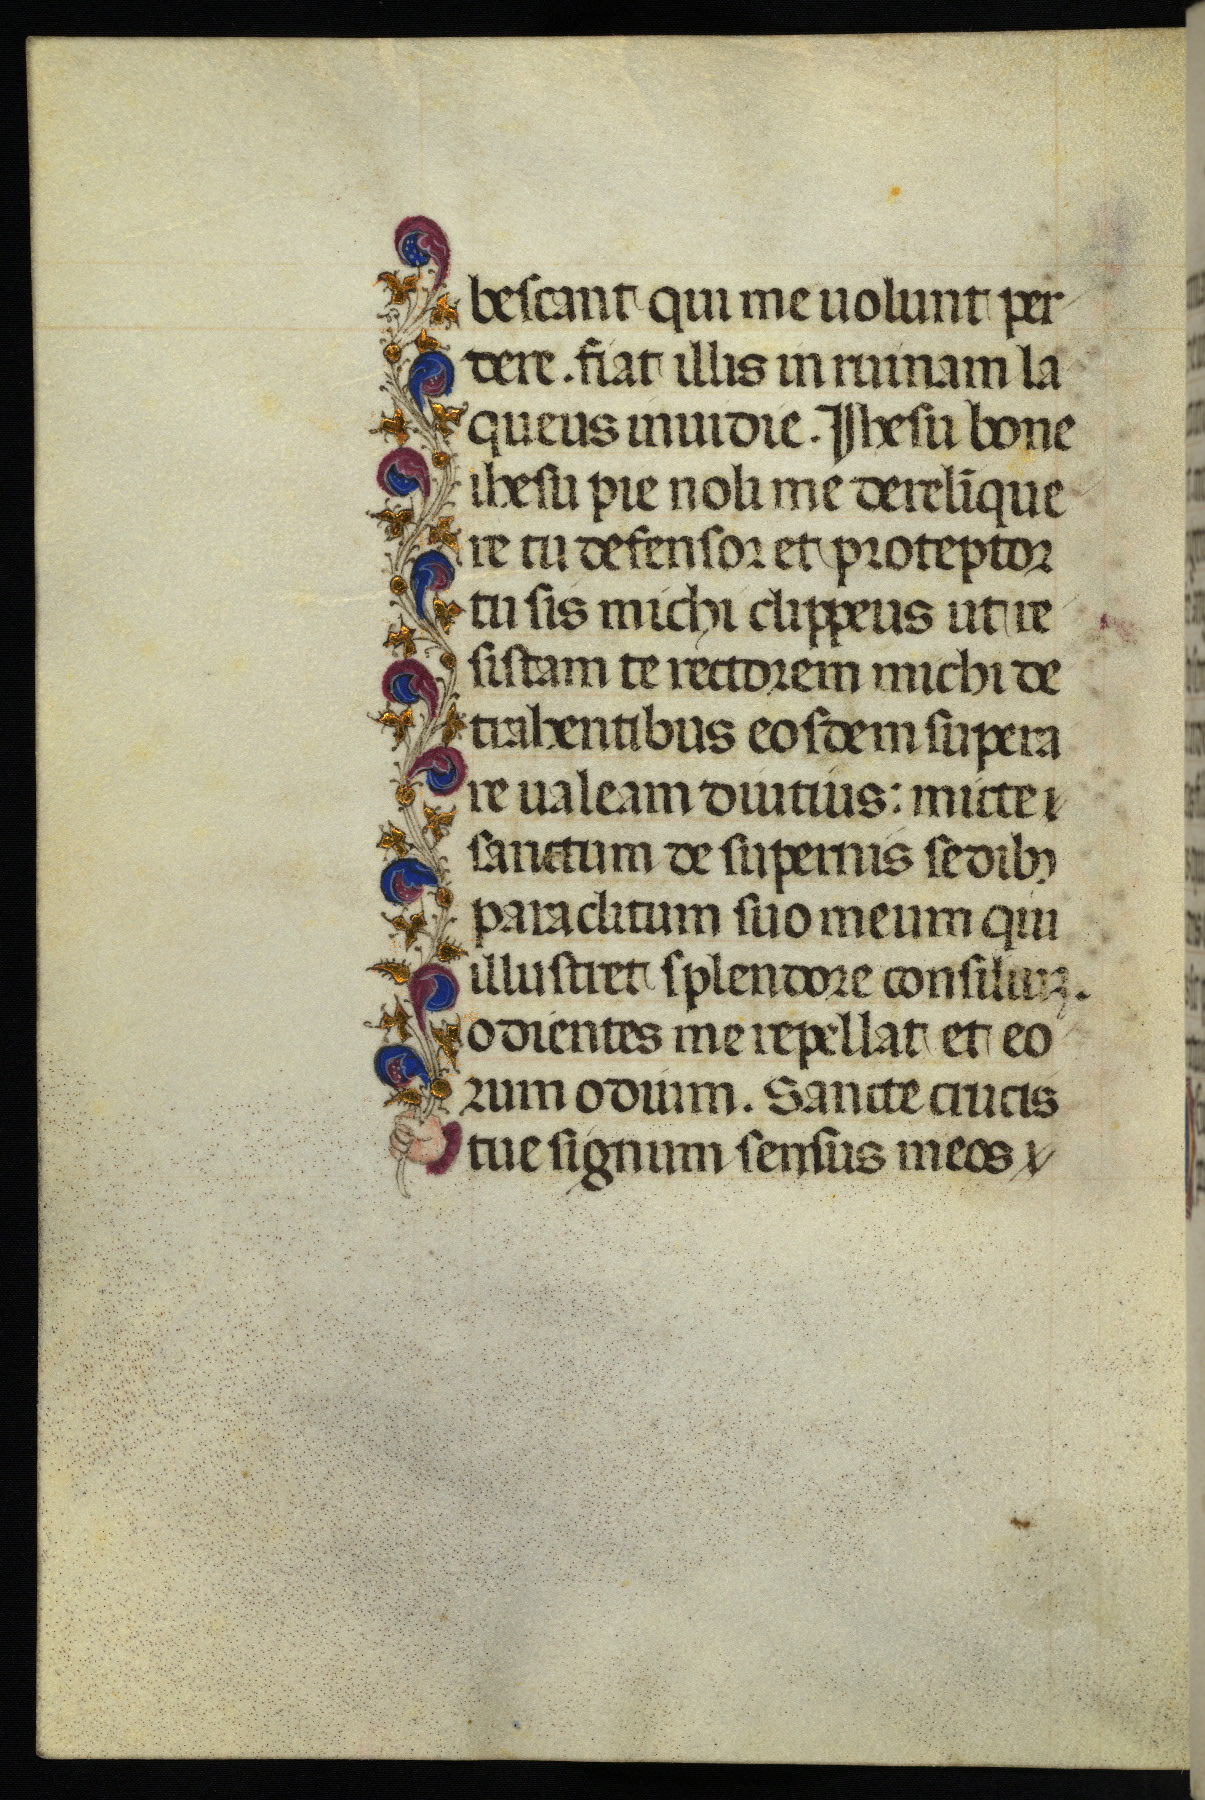 bescant qui me uolunt per
dere. fiat illis in ruinam la
queus inuidie. Ihesu bone
ihesu pie noli me derelique
re tu defensor et proteptor
tu sis michi clippeus ut re
sistam te rectorem michi de
trahentibus eosdem supera
re ualeam diuitius: micte
sanctum de supernis sedibꝫ
paraclitum suo meum qui
illustret splendore consiliuꝫ.
odientes me repellat et eo
rum odium. Sancte crucis
tue signum sensus meos